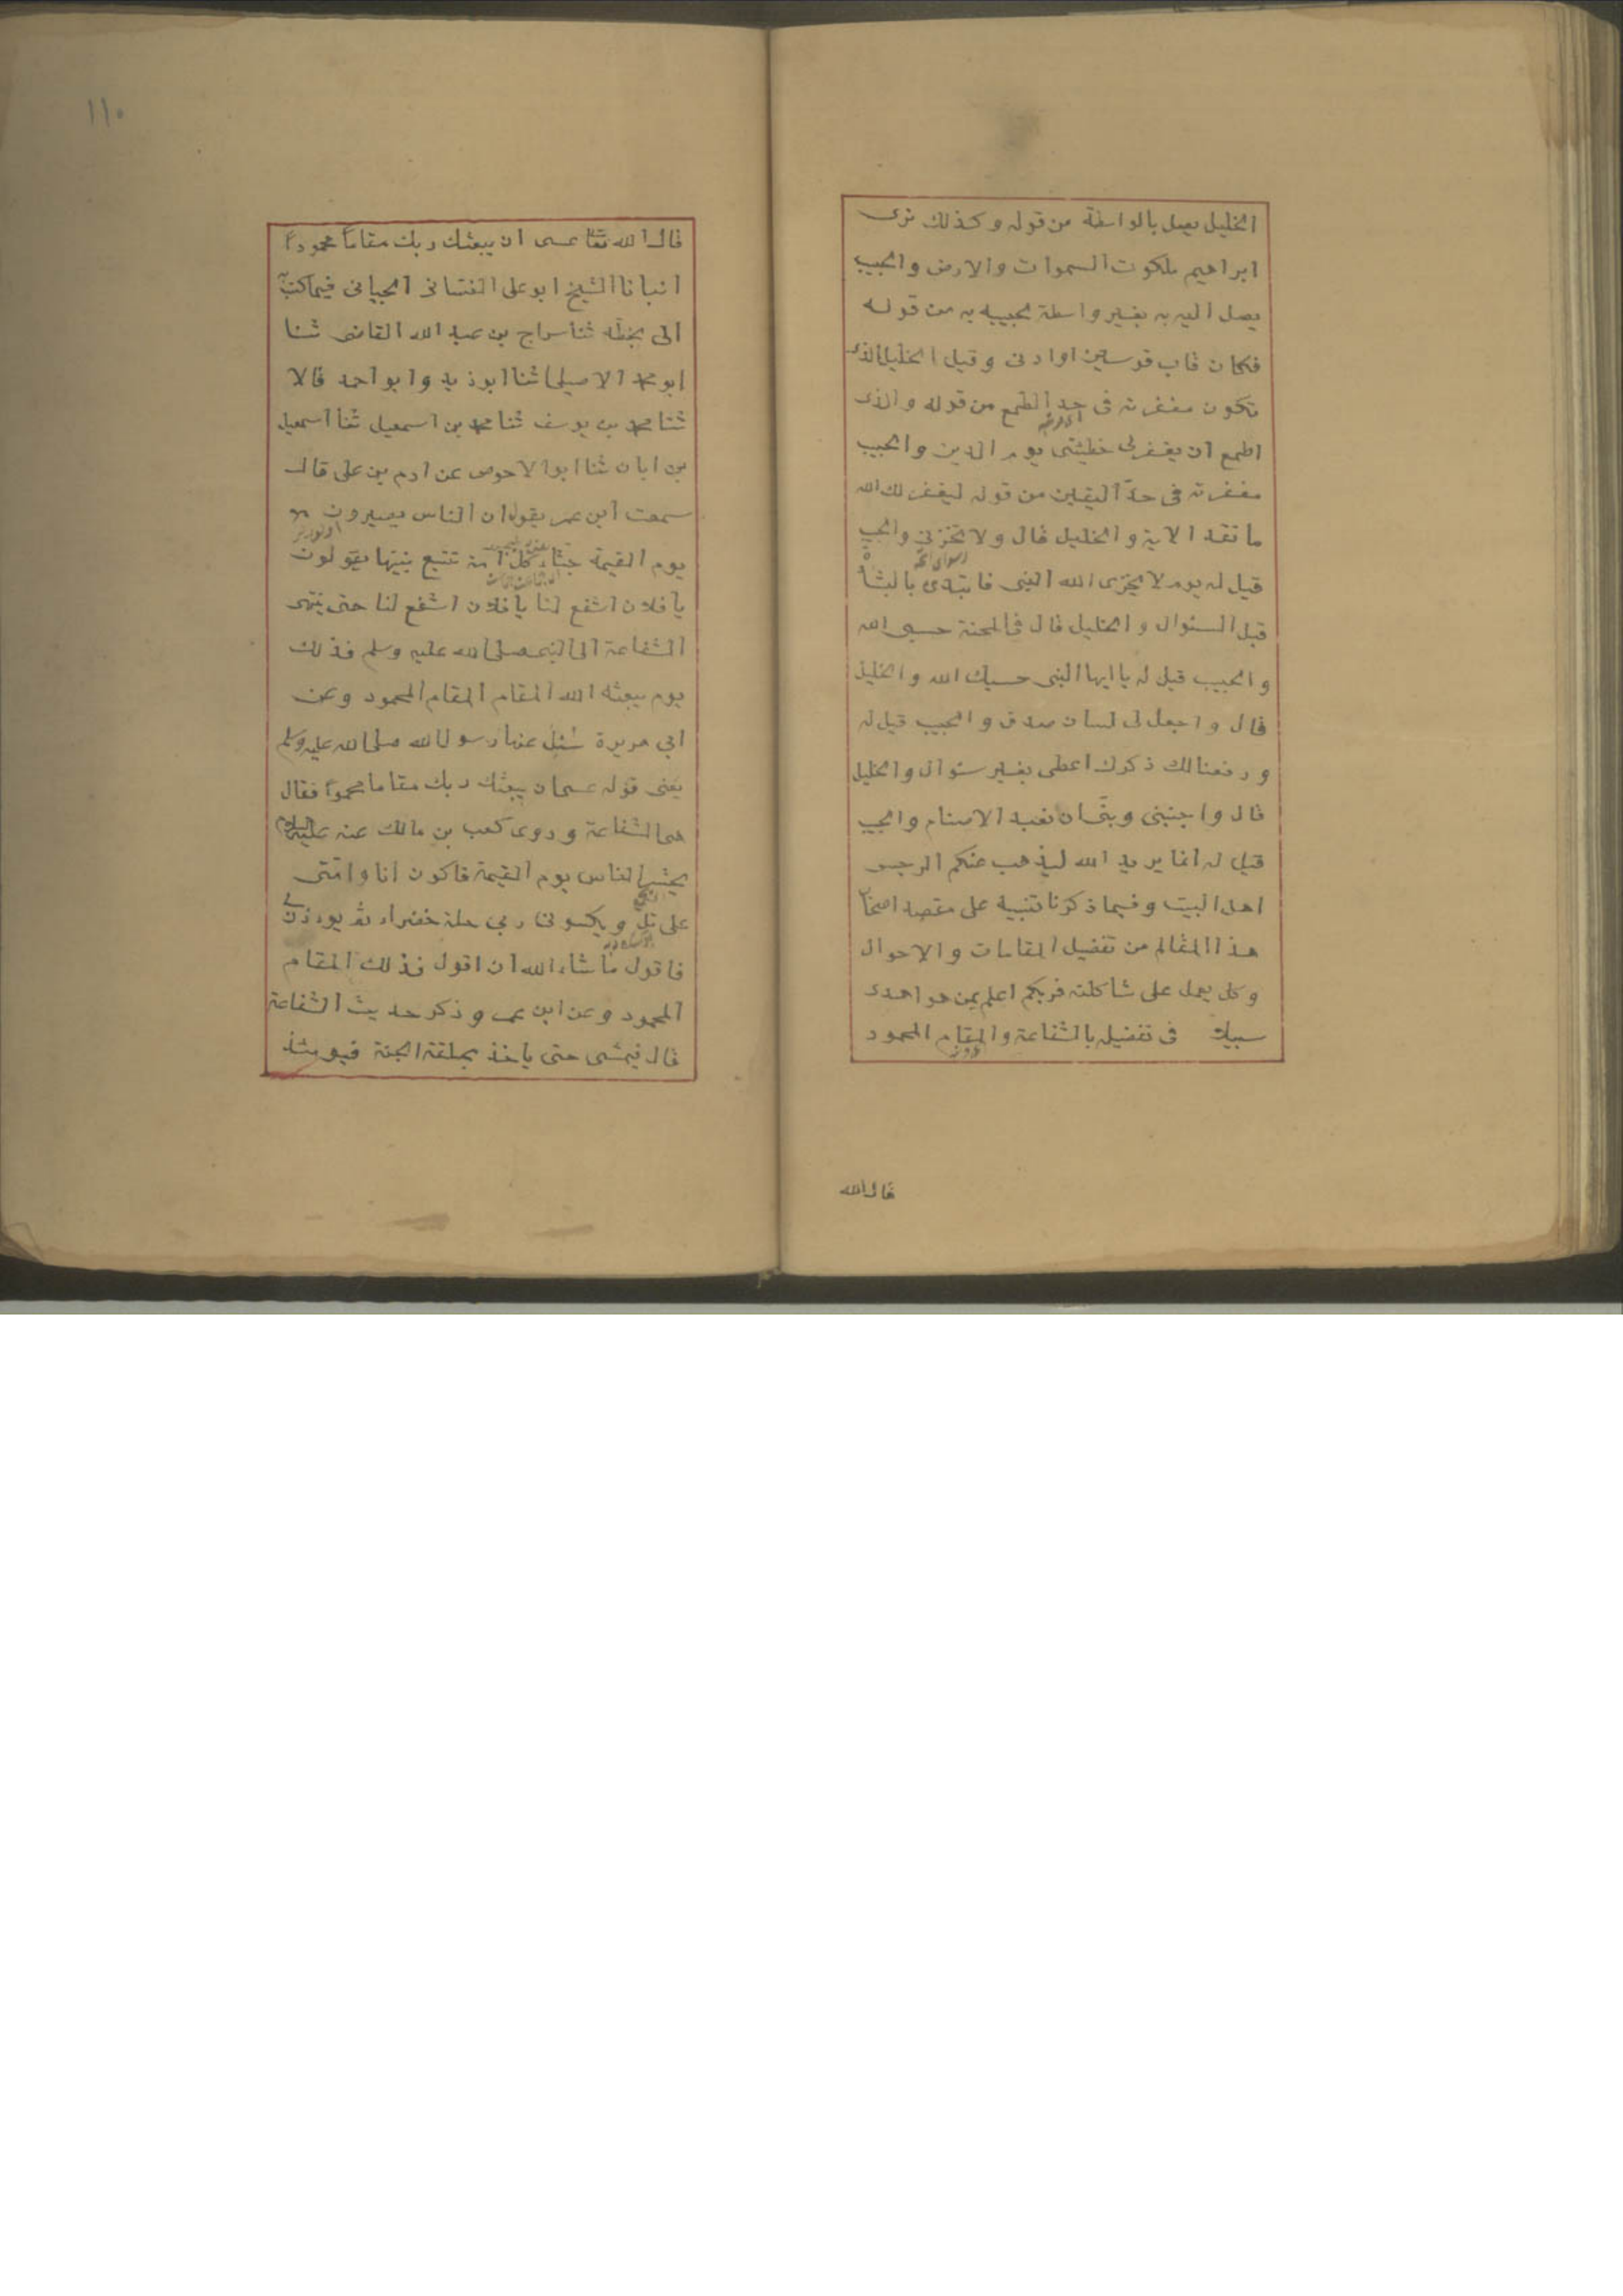 الخليل يصل بالواسطة من قوله وكذلك نرى
ابراهيم ملكوت السموات والارض والحبيب
يصل اليه به بغير واسطة لحبيبه به من قوله
فكان قاب قوسين او ادنى وقيل الخليل الذى
تكون مغفرته فى حد الطمع من قوله والذى
اطمع ان يغفر لى خطيئتى يوم الدين والحبيب
مغفرته فى حدّ اليقين من قوله ليغفر لك الله
ما تقد الاية والخليل قال ولا تخزنى والحبيب
قيل له يوم لا يخزى الله النبى فابتدى بالبشارة
قبل السئوال والخليل قال فى المحنة حسبى الله
والحبيب قيل له يا ايها النبى حسبك الله والخليل
قال واجعل لى لسان صدق والحبيب قيل له
ورفعنا لك ذكرك اعطى بغير سئوال والخليل
قال واجنبنى وبنىّ ان نعبد الاصنام والحبيب
قيل له انما يريد الله ليذهب عنكم الرجس
اهل البيت وفيما ذكرنا تنبيه على مقصد اصحاب
هذا المقال من تفضيل المقامات والاحوال
وكل يعمل على شاكلته فربكم اعلم بمن هو اهدى
سبيلا فى تفضيله بالشفاعة والمقام المحمود
قال الله
١١٠
قال الله تعا عسى ان يبعثك ربك مقاماً محموداً
انبانا الشيخ ابو على الغسانى الجيانى فيما كتب
الى بخطه ثنا سراج بن عبد الله القاضى ثنا
ابو محمد الاصيلى ثنا ابو زيد وابو احمد قالا
ثنا محمد بن يوسف ثنا محمد بن اسمعيل ثنا اسمعيل
بن ابان ثنا ابو الاحوص عن ادم بن على قال
سمعت ابن عمر يقول ان الناس يصيرون
يوم القيمة جثاء كل امة تتبع نبيها يقولون
يا فلان اشفع لنا يا فلان اشفع لنا حتى ينتهى
الشفاعة الى النبى صلى الله عليه وسلم فذلك
يوم يبعثه الله المقام المقام المحمود وعن
ابي هريرة سُئل عنها رسول الله صلى الله عليه وسلم
يعنى قوله عسى ان يبعثك ربك مقاما محموداً فقال
هى الشفاعة وروى كعب بن مالك عنه عليه السلام
يحشر الناس يوم القيمة فاكون انا وامّتى
على تل ويكسونى ربي حلة خضراء ثم يوءذن لى
فاقول ما شاء الله ان اقول فذلك المقام
المحمود وعن ابن عمر وذكر حديث الشفاعة
قال فيمشى حتى ياخذ بحلقة الجنة فيومئذ